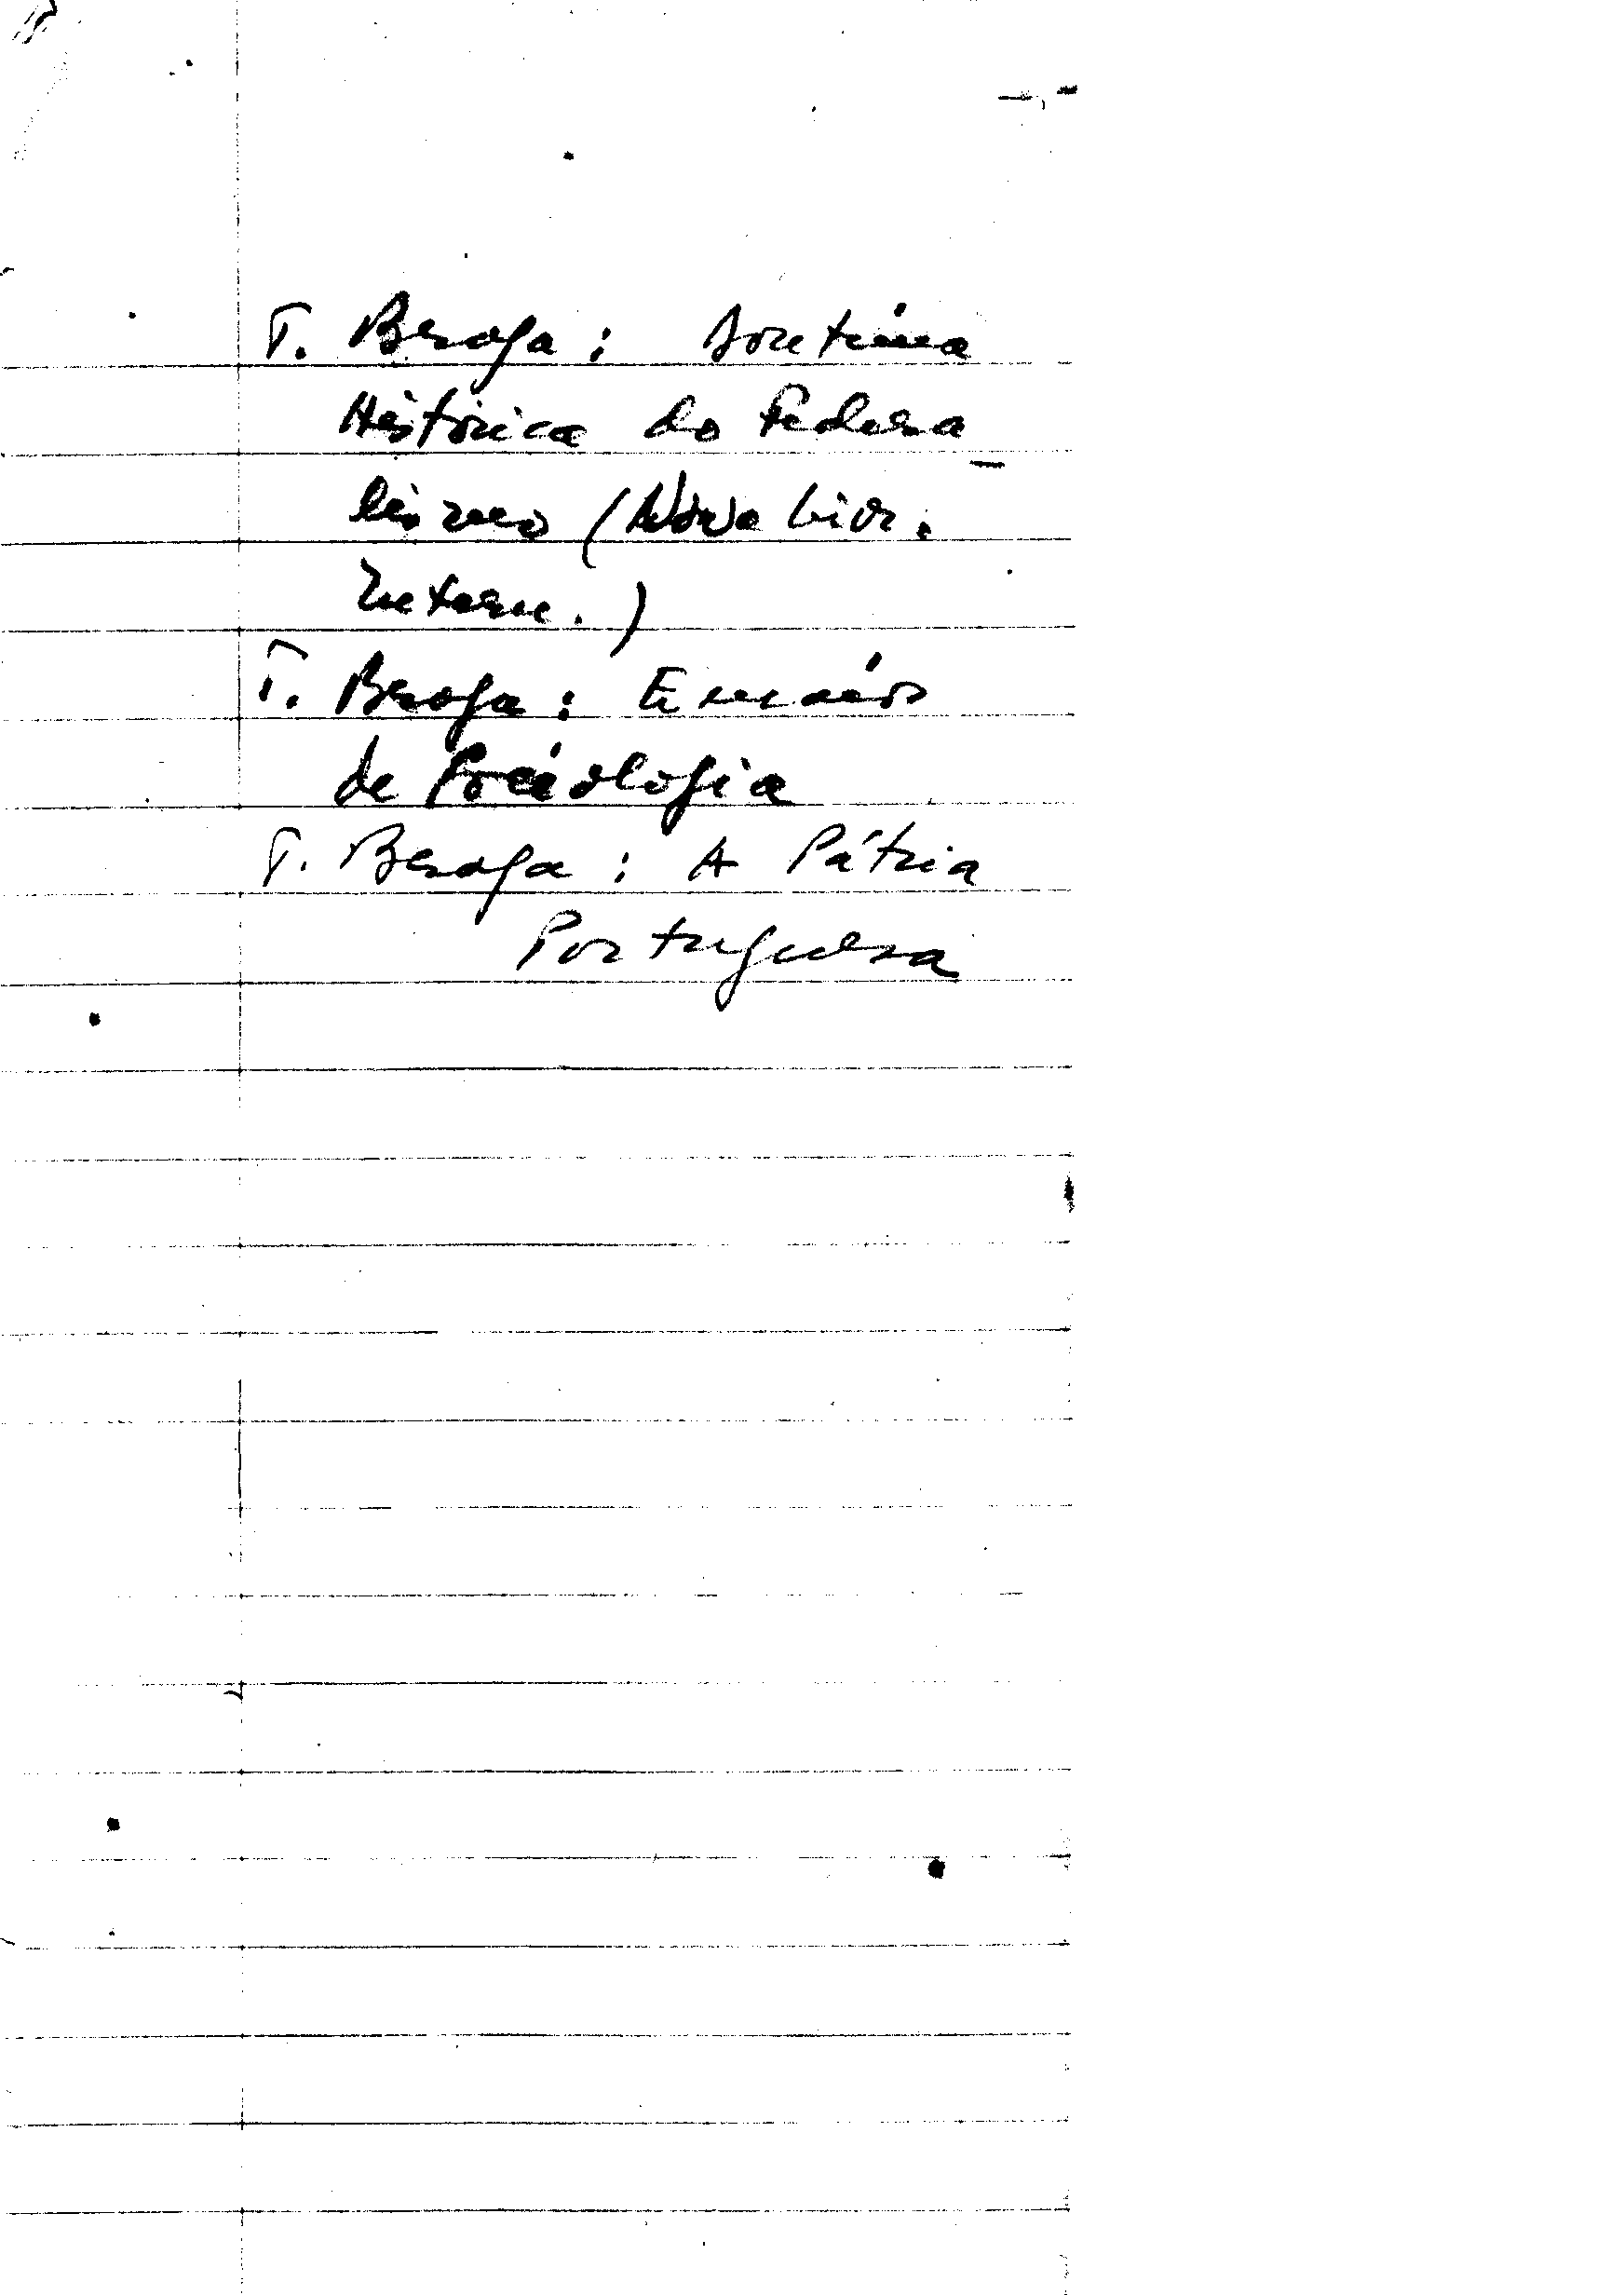 T. Braga:
Histórica do Federa-
lismo (Nova Livr.
Intern.)
T. Braga:
de Sociologia
T. Braga: A Pátria
Portuguesa